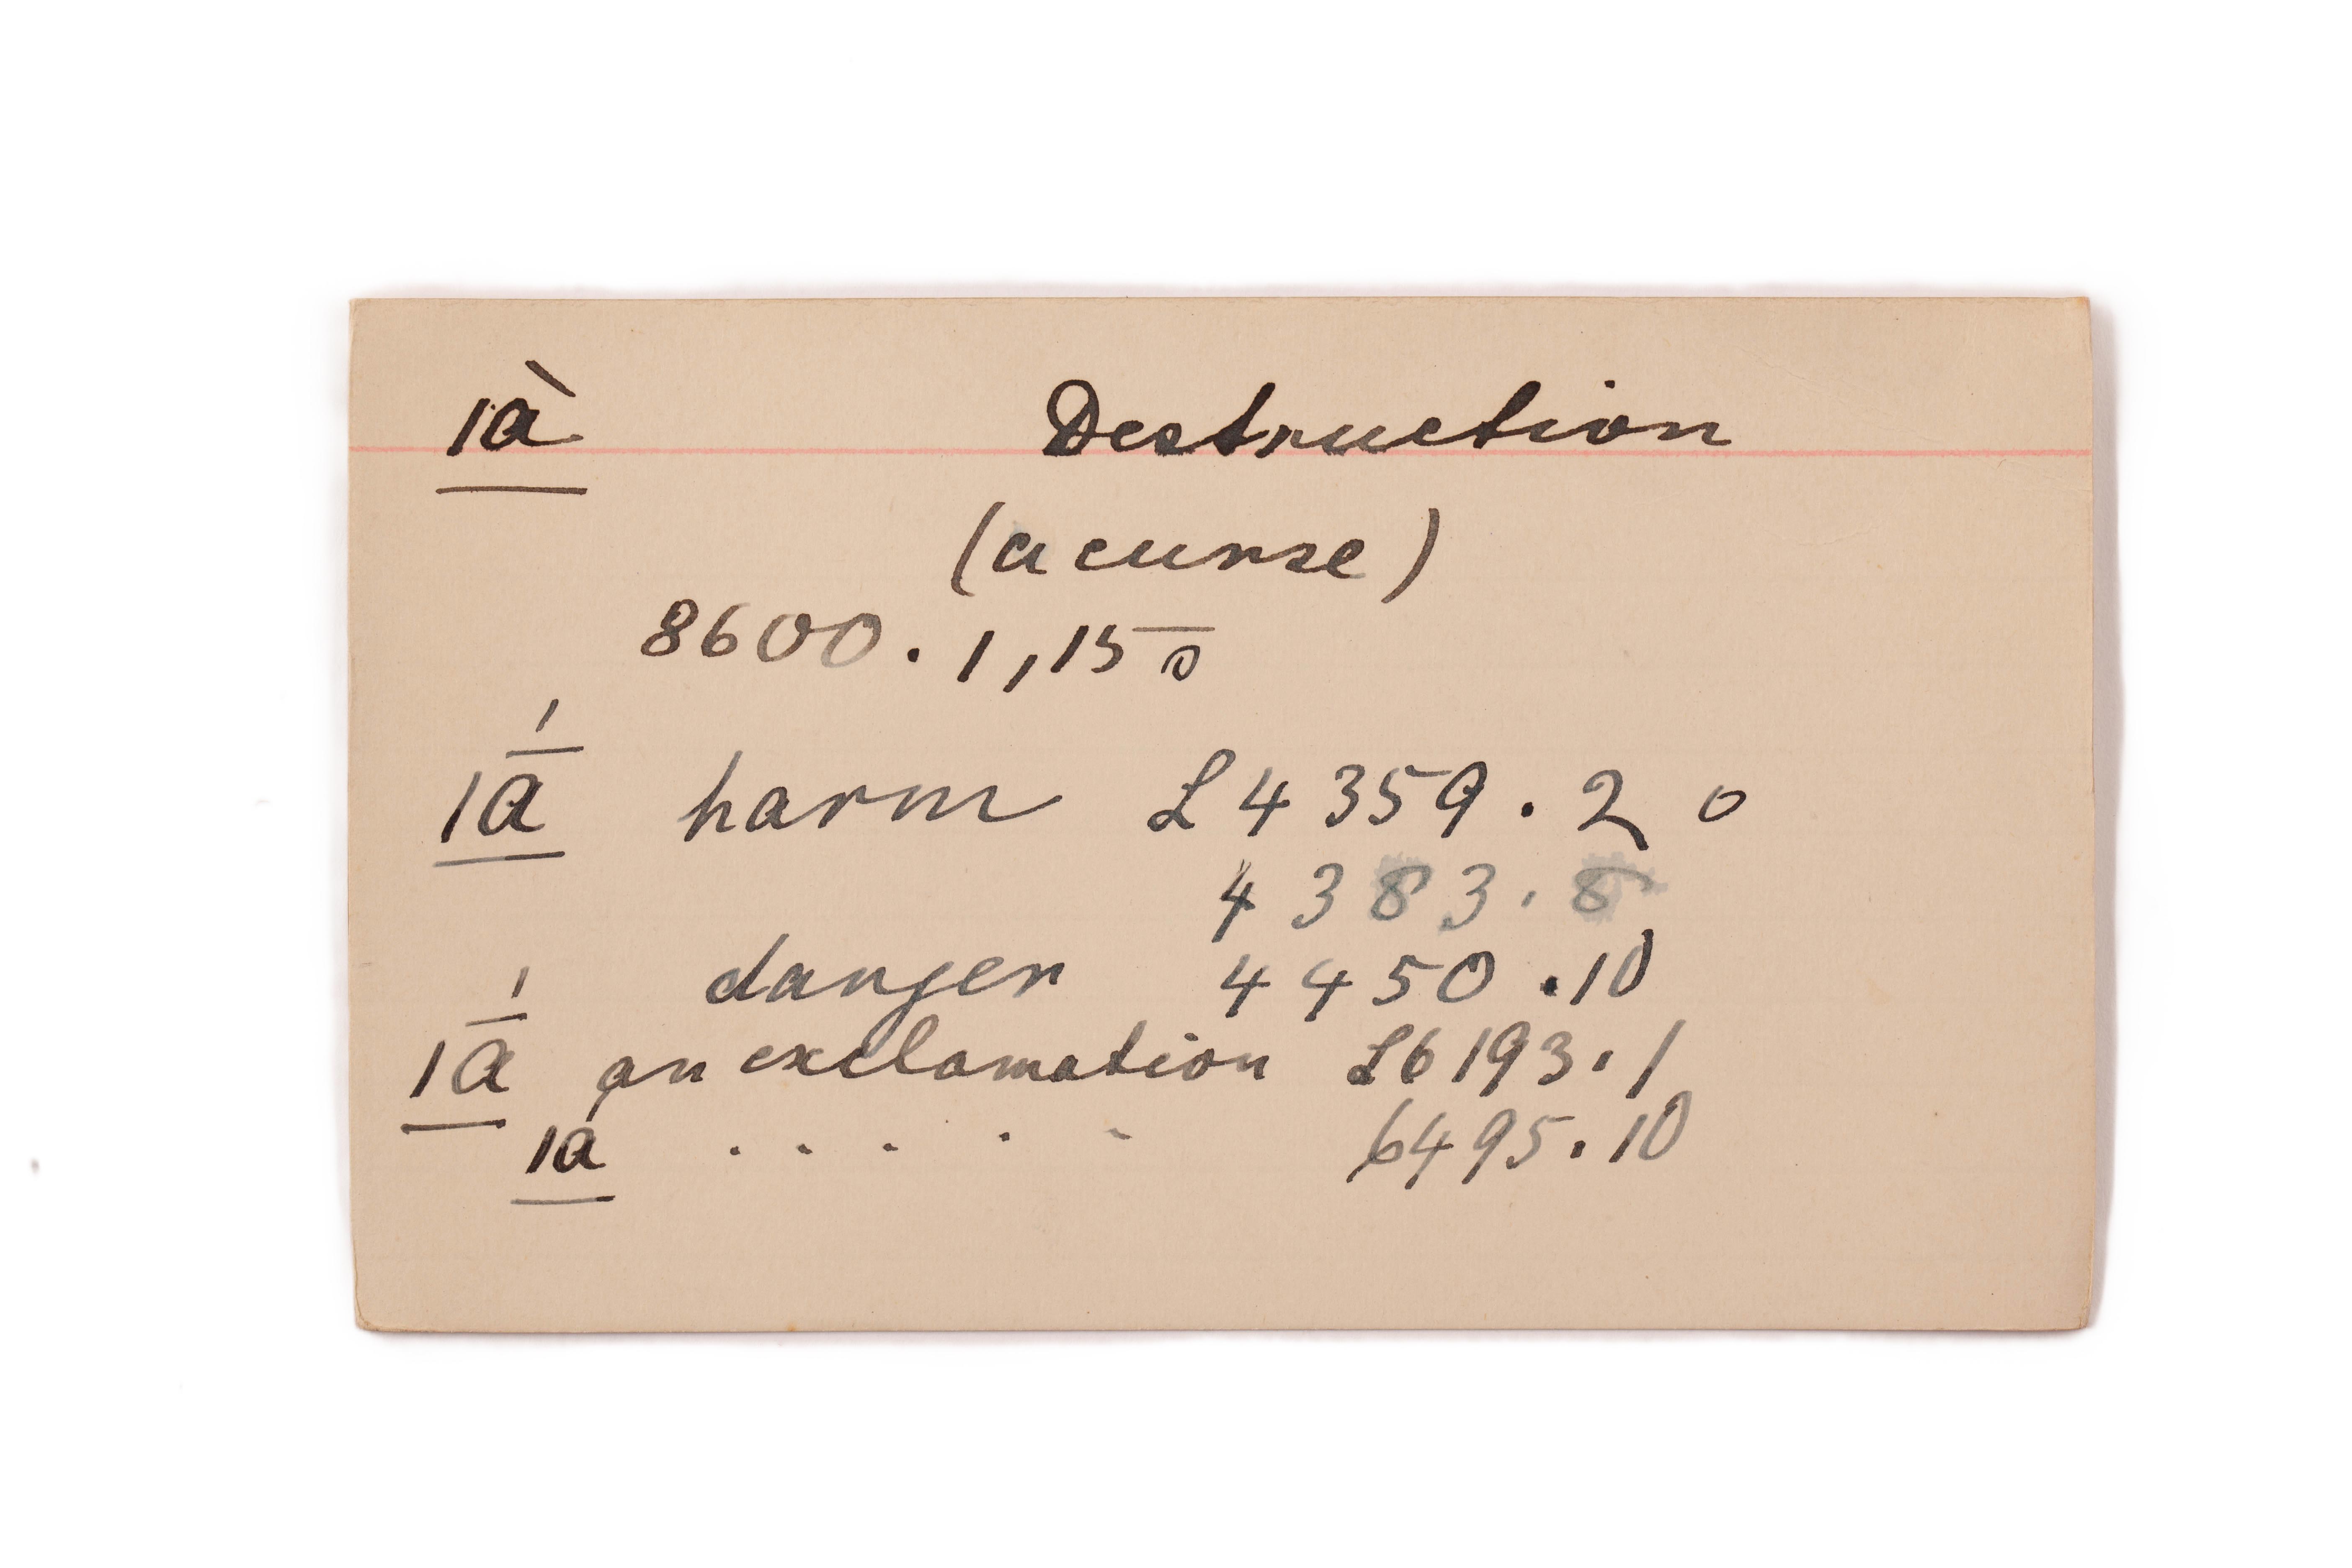 ıà Destruction
(a curse)
8600.1,15 o
ıā́ harm L4359.2 o
4383.8
danger 4450.10
ıā́ an exclamation L6193.1
ıa . . . . . 6495.10